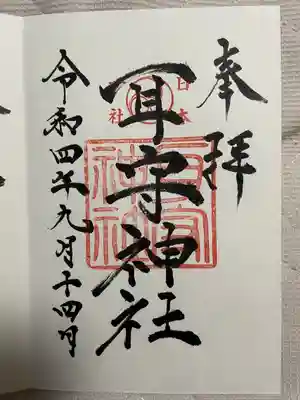 奉拝
日本一社
耳守神社
令和四年九月十四日